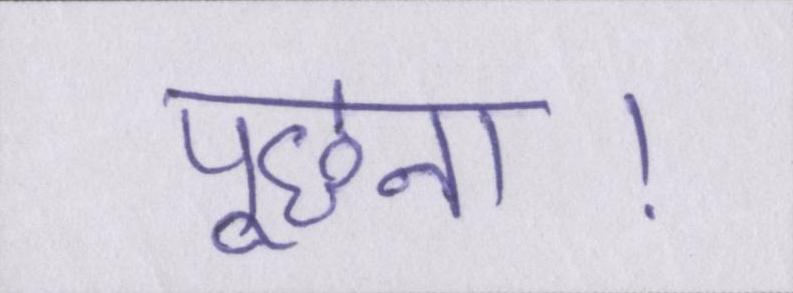 पूछना !